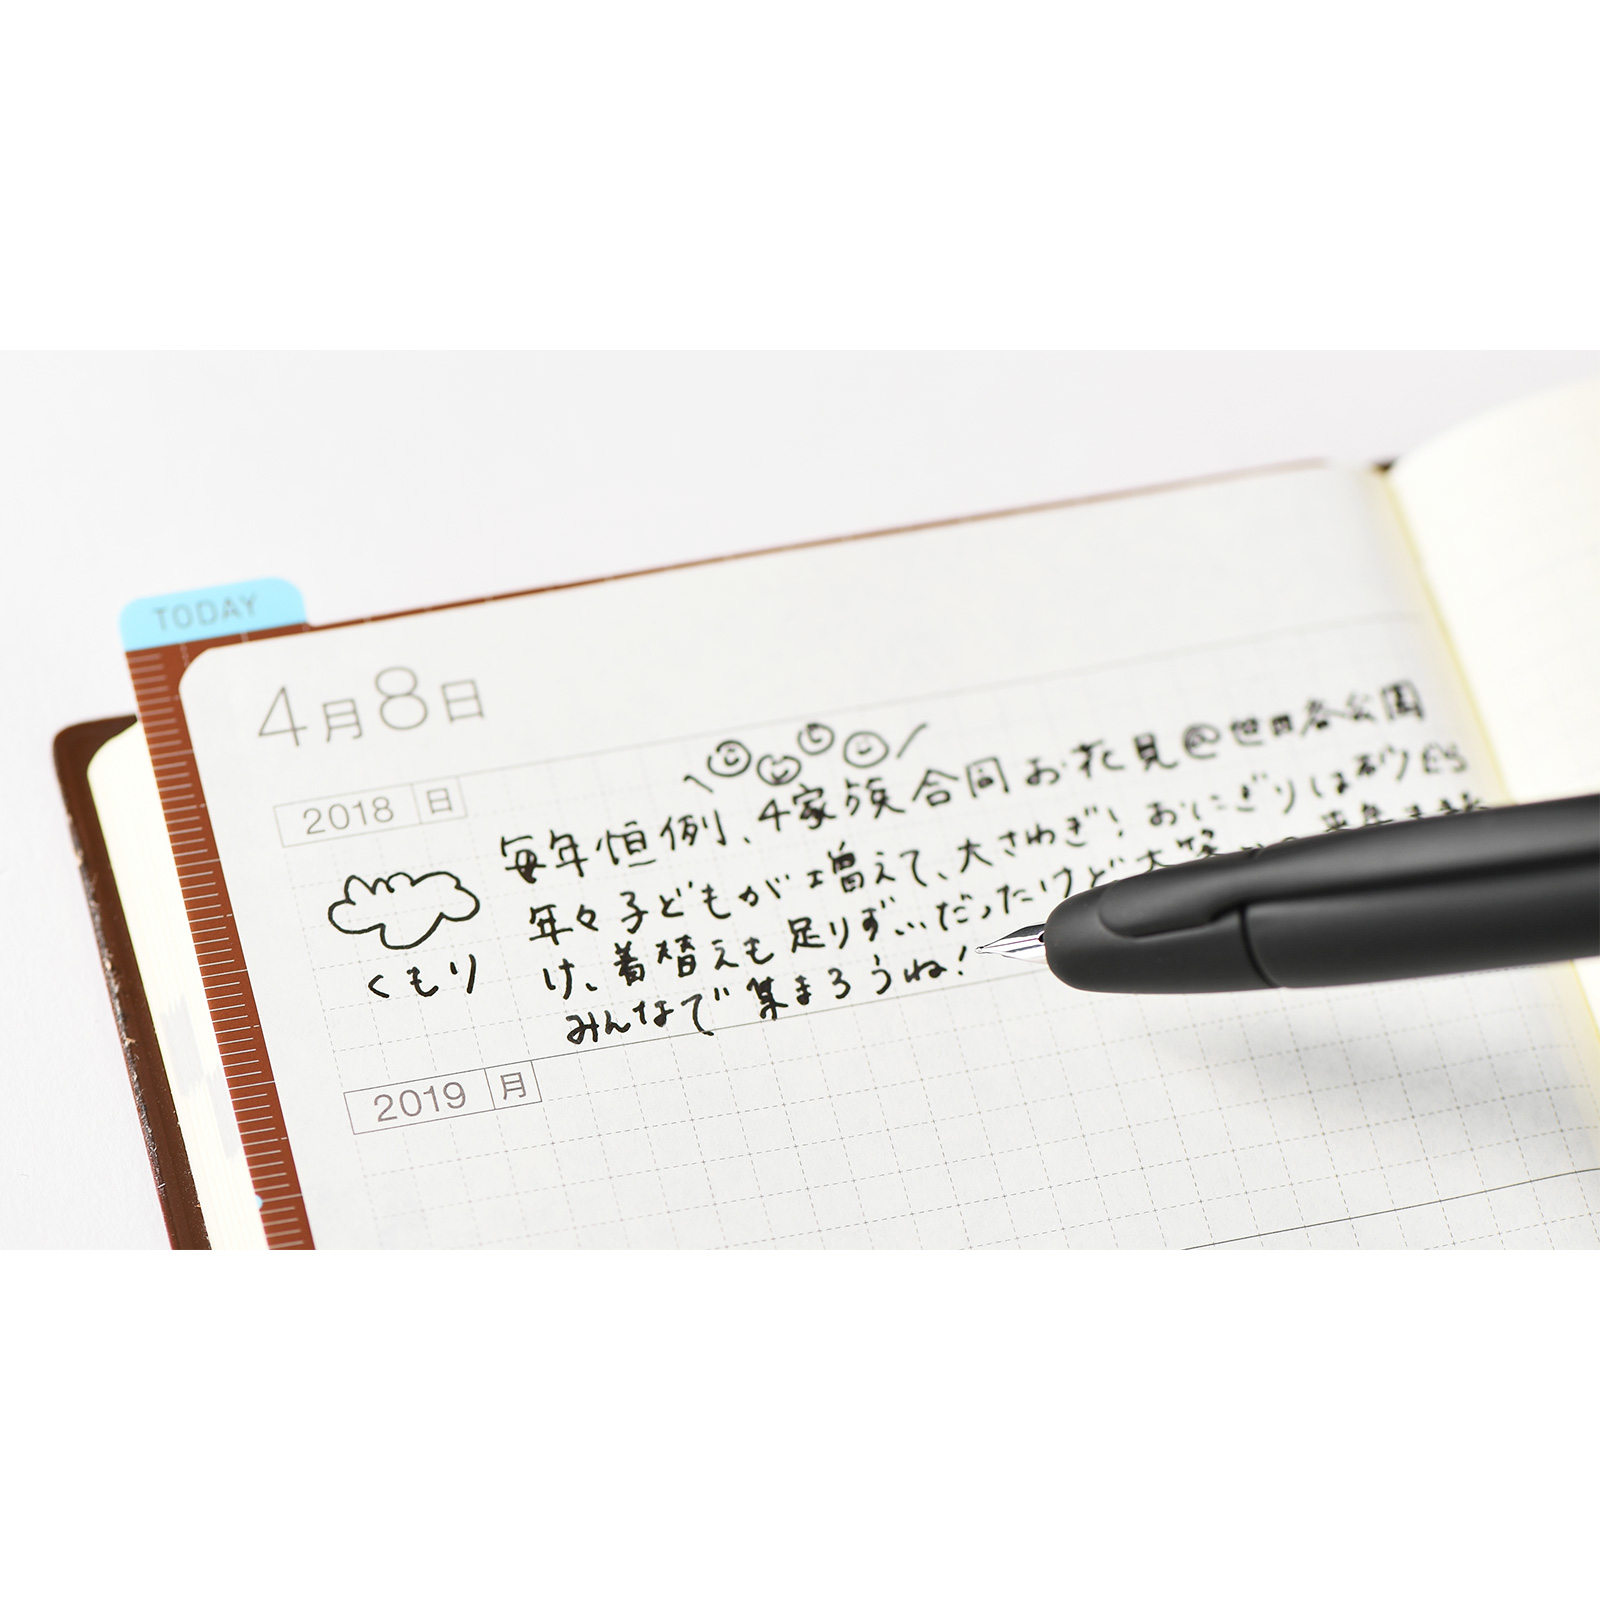 TODAY
4月8日
2018 日
毎年恒例、4家族合同お花見@世田谷公園
年々子どもが増えて、大さわぎ!おにぎりは砂
け、着替えも足りずい、だったけど大笑
みんなで集まろうね!
くもり
2019 月